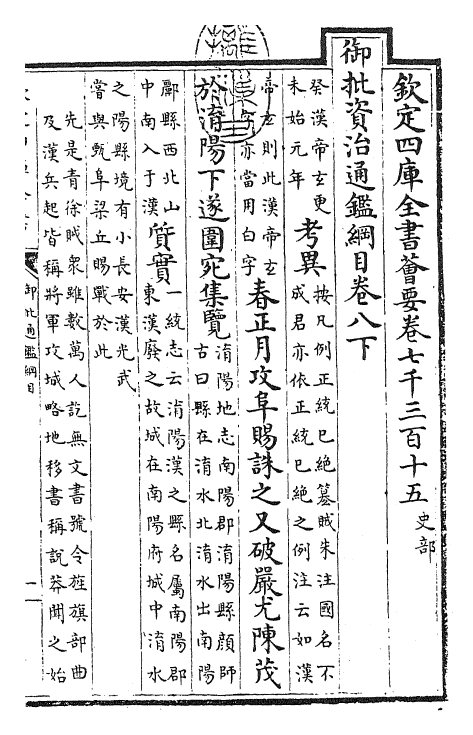 欽定四庫全書薈要卷七千三百十五 史部
御批資治通鑑綱目卷八下
癸漢帝玄更
未始元年
考異
按凡例正統已絕篡賊朱注國名不
成君亦依正統已絕之例注云如漢
帝玄則此漢帝玄
字亦當用白字
春正月攻阜賜誅之又破嚴尤陳茂
於淯陽下遂圍宛集覽
淯陽地志南陽郡淯陽縣顏師
古曰縣在淯水北淯水出南陽
酈縣西北山
中南入于漢
質實
一統志云淯陽漢之縣名屬南陽郡
東漢廢之故城在南陽府城中淯水
之陽縣境有小長安漢光武
嘗與甄阜梁丘賜戰於此
先是青徐賊衆雖數萬人訖無文書號令旌旗部曲
及漢兵起皆稱將軍攻城略地移書稱說莽聞之始
御批通鑑綱目
一